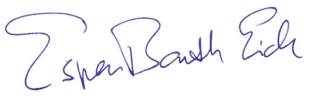 Espen Barth Eide